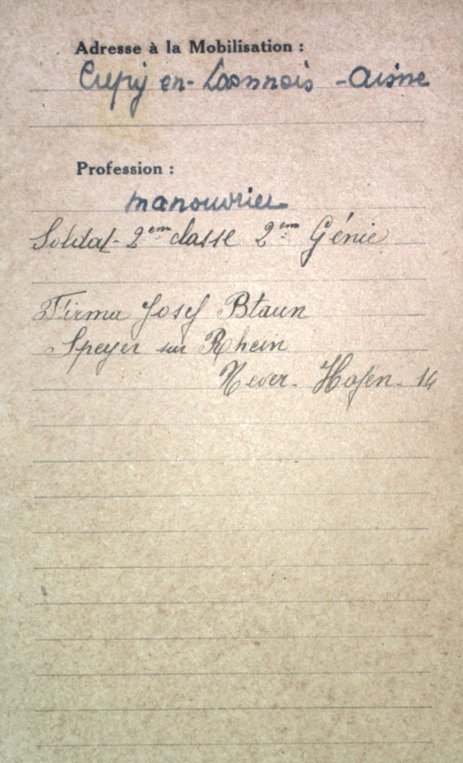 Adresse à la Mobilisation :
Crépy en-Laonnois - Aisne
Profession :
manouvrier
Soldat- 2ème classe 2ème Génie
Firma Josef Btaun
Speyer sur Rhein
Neuer- Hafen- 14